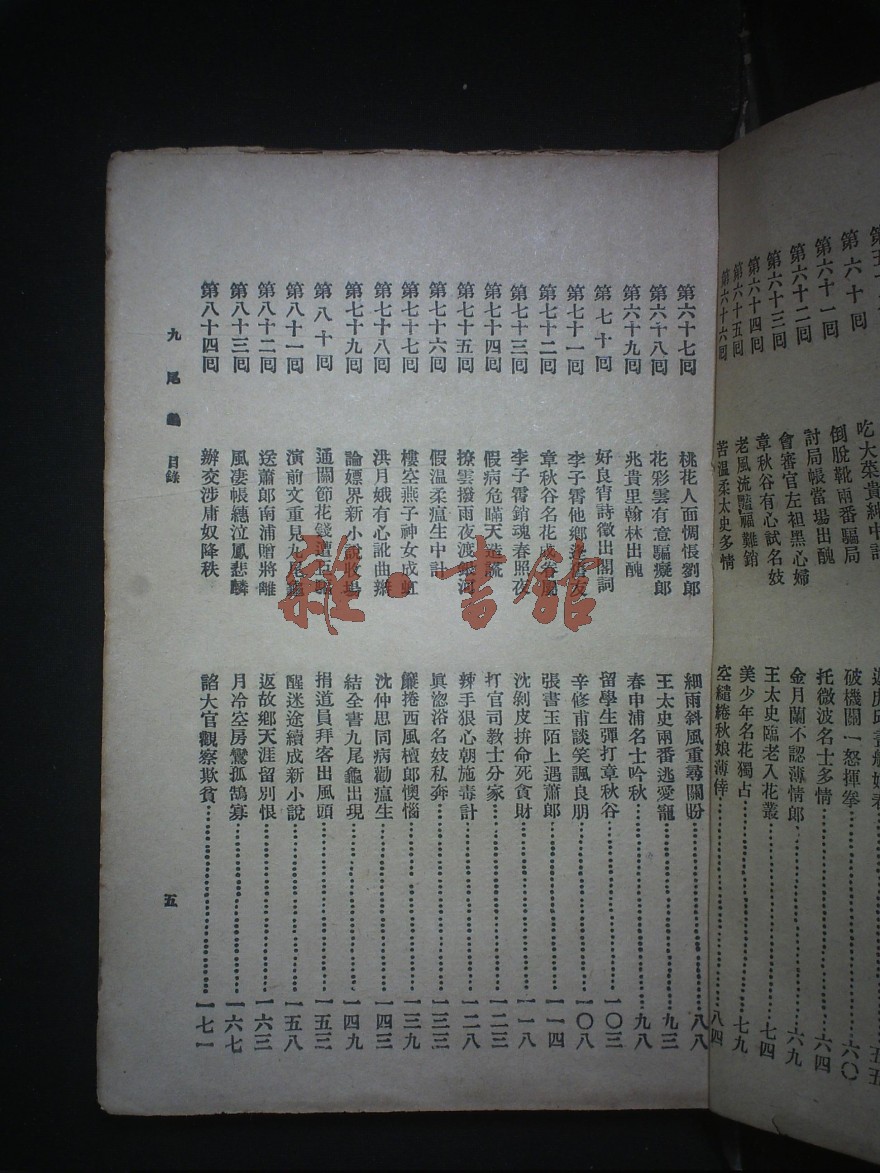 第六十回
第六十一回 倒脫靴兩番騙局 破機關一怒揮拳 六〇
第六十二回 討局帳當場出醜 托微波名士多情 六四
第六十三回 會審官左袒黑心婦 金月蘭不認薄情郎 六九
第六十四回 章秋谷有心試名妓 王太史臨老入花叢 七四
第六十五回 老風流豔福難銷 美少年名花獨占 七九
第六十六回 苦溫柔太史多情 空繾綣秋娘薄倖 八四
第六十七回 桃花人面惆悵劉郎 細雨斜風重尋關盼 八八
第六十八回 花彩雲有意騙癡郎 王太史兩番逃愛寵 九三
第六十九回 兆貴里翰林出醜 春申浦名士吟秋 九八
第七十回 好良宵詩徵出閣詞 留學生彈打章秋谷 一〇三
第七十一回 李子霄他鄉逢舊友 辛修甫談笑諷良朋 一〇八
第七十二回 章秋谷名花成眷屬 張書玉陌上遇蕭郎 一一四
第七十三回 李子霄銷魂春照夜 沈剝皮拚命死貪財 一一八
第七十四回 假病危瞞天造謊 打官司教士分家 一二三
第七十五回 撩雲撥雨夜渡銀河 辣手狠心朝施毒計 一二八
第七十六回 假溫柔瘟生中計 真惚浴名妓私奔 一三三
第七十七回 樓空燕子神女成虹 簾捲西風檀郎懊惱 一三九
第七十八回 洪月娥有心訛曲辮 沈仲思同病勸瘟生 一四三
第七十九回 論嫖界新小說收場 結全書九尾龜出現 一四九
第八十回 通關節花錢遭巨騙 捐道員拜客出風頭 一五三
第八十一回 演前文重見九尾龜 醒迷途續成新小說 一五八
第八十二回 送蕭郎南浦贈將離 返故鄉天涯留別恨 一六三
第八十三回 風淒帳繐泣鳳悲麟 月冷空房鸞孤鵠寡 一六七
第八十四回 辦交涉庸奴降秩 諂大官觀察欺貧 一七一
九尾龜 目錄
五
雜·書館